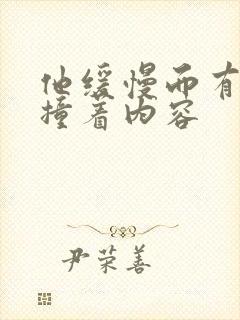 他缓慢而有
撞着内容
尹荣善